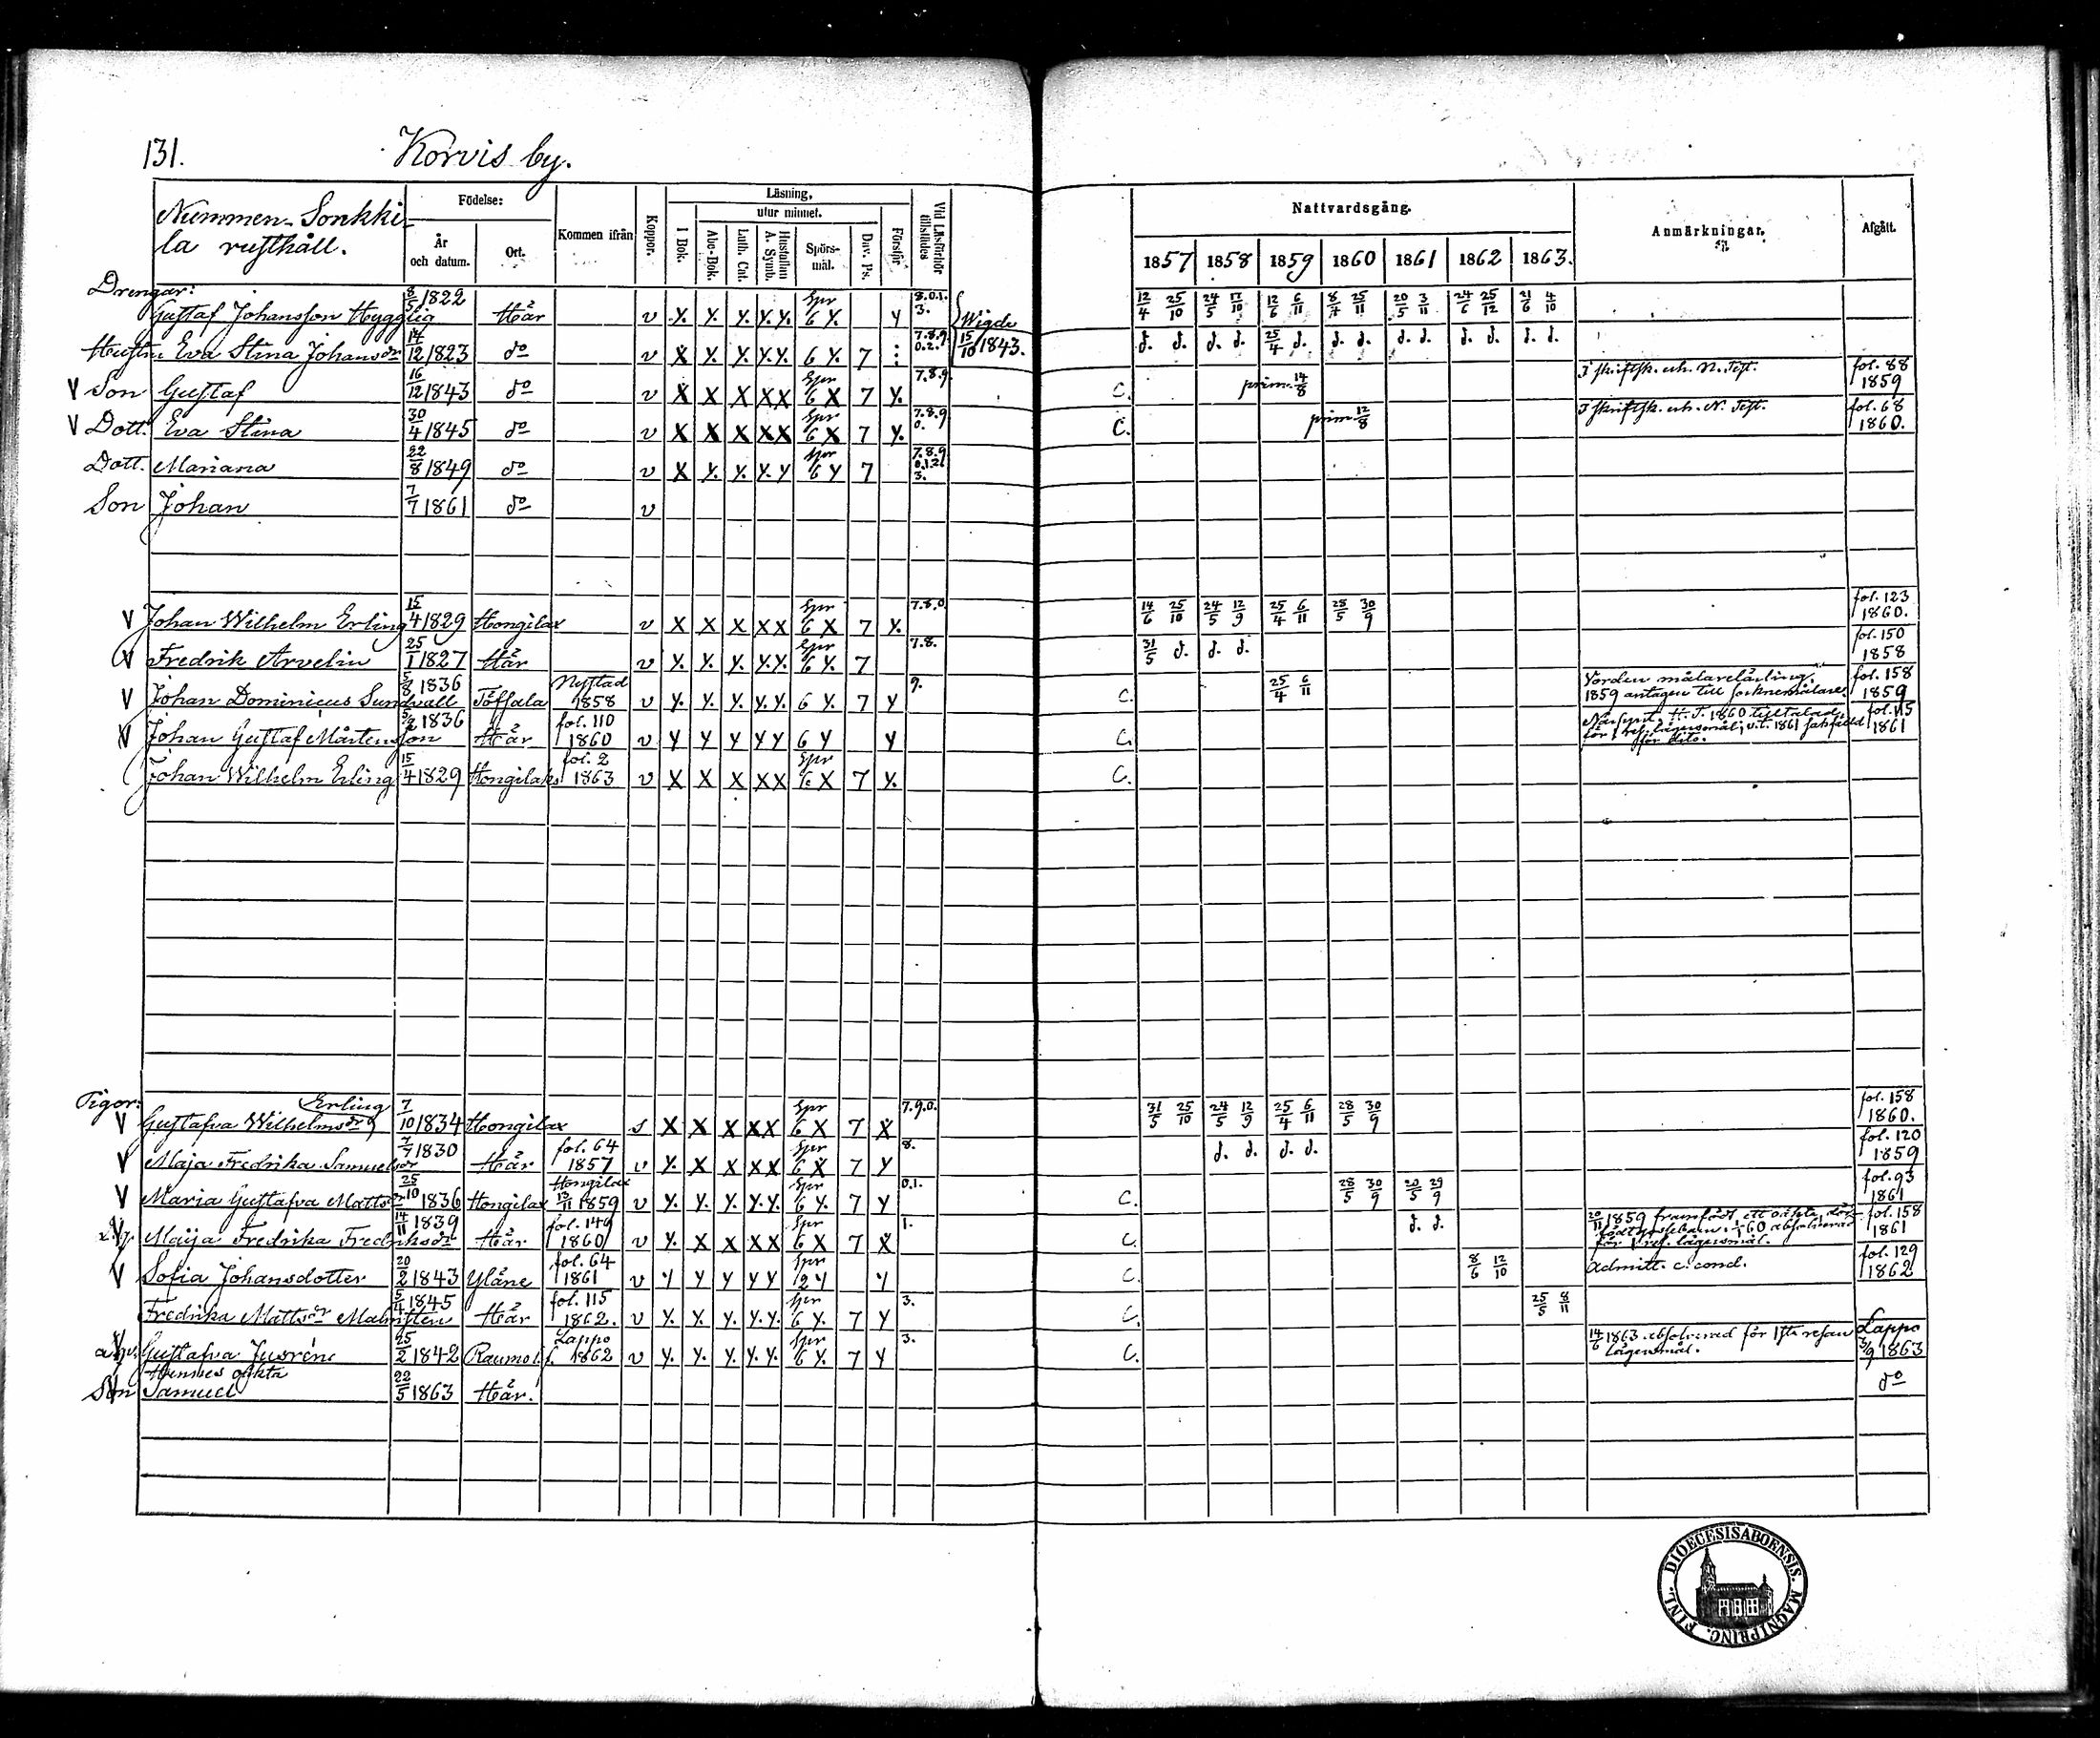 131. Korvis by.
Nummen-Sonkki-
la rusthåll.
Födelse:
År och datum.
Ort.
Kommen ifrån
Koppor.
Läsning,
utur minnet.
I Bok.
Abc-Bok.
Luth. Cat.
Hustaflan A. Symb.
Spörs-mål.
Dav. Ps.
Förstår
Vid Läsförhör tillstädes
Nattvardsgång.
1857 1858 1859 1860 1861 1862 1863.
Anmärkningar.
Afgått.
Drengar:
Gustaf Johansson Hygglig 8/5 1822 Här v y. y. y. y. y. Spr 6 y. y 8.0.1.3. Wigde 15/10 1843. 12/4 25/10 24/5 17/10 12/6 6/11 8/7 25/11 20/5 3/11 24/6 25/12 21/6 4/10
Hustru Eva Stina Johansdr 14/12 1823 do v X y. y. y. y. 6 y. 7 7.8.9.0.2. d. d. d. d. 25/4 d. d. d. d. d. d. d. d. d.
V Son Gustaf 16/12 1843 do v X X X X X Spr 6 X 7 y. 7.8.9. C. prim. 14/8 I skriftsk. och. N. Test. fol. 88 1859
V Dott. Eva Stina 30/4 1845 do v X X X X X Spr 6 X 7 y. 7.8.9 0. C. prim 12/8 I skriftsk. och. N. Test. fol. 68 1860.
Dott. Mariana 22/8 1849 do v X y. y. y. y Spr 6 y 7 7.8.9 0.1.2. 3.
Son Johan 7/7 1861 do v
V Johan Wilhelm Erling 15/4 1829 Hongilax v X X X X X Spr 6 X 7 y. 7.8.0. 14/6 25/10 24/5 12/9 25/4 6/11 25/5 30/9 fol. 123 1860.
V Fredrik Arvelin 25/1 1827 Här v y. y. y. y. y. Spr 6 y. 7 7.8. 31/5 d. d. d. fol. 150 1858
V Johan Dominicus Sundvall 5/8 1836 Töffsala Nystad 1858 v y. y. y. y. y. 6 y. 7 y 9. C. 25/4 6/11 Vorden målarelärling. fol. 158
1859 antagen till socknemålare. 1859
V Johan Gustaf Mårtensson 1836 Här fol. 110 1860 v y y y y y 6 y y C. H. T. 1860 tilltalad fol. 115
för 1 res. lägersmål; v.t. 1861 sakfälld 1861
för dito.
Johan Wilhelm Erling 15/4 1829 Hongilaks fol. 2 1863 v X X X X X Spr 6 X 7 y. C.
Pigor:
Erling
V Gustafva Wilhelmsdr 7/10 1834 Hongilax s X X X X X Spr 6 X 7 X 7.9.0. 31/5 25/10 24/5 12/9 25/4 6/11 28/5 30/9 fol. 158 1860.
V Maja Fredrika Samuelsdr 7/7 1830 Här fol. 64 1857 v y. X X X X Spr 6 X 7 y 8. d. d. d. d. fol. 120 1859
V Maria Gustafva Mattsdr 25/10 1836 Hongilax Hongilax 13/11 1859 v y. y. y. y. y. Spr 6 y. 7 y 0.1. C. 28/5 30/9 20/5 29/9 fol. 93 1861
Maija Fredrika Fredriksdr 14/11 1839 Här fol. 149 1860 v y. X X X X Spr 6 X 7 X 1. C. d. d. 20/11 1859 framfödt ett oäkta, död- fol. 158
födt gossebarn; 60 absolverad 1861
för 1 res. lägersmål.
V Sofia Johansdotter 20/2 1843 Yläne fol. 64 1861 v y y y y y Spr 2 y y C. 8/6 12/10 Admitt. c. cond. fol. 129 1862
Fredrika Mattsdr Malmsten 5/4 1845 Här fol. 115 1862. v y. y. y. y. y. Spr 6 y. 7 y 3. C. 25/5 8/11
Gustafva Jusréni 25/2 1842 Raumo l.f. Lappo 1862 v y. y. y. y. y. Spr 6 y. 7 y 3. C. 14/6 1863 absolverad för 1sta resan Lappo
lägersmål. 3/9 1863
Hennes oäkta
Son Samuel 22/5 1863 Här. do
FINL. DIOECESIS ABOENSIS. MAGNI PRINC.